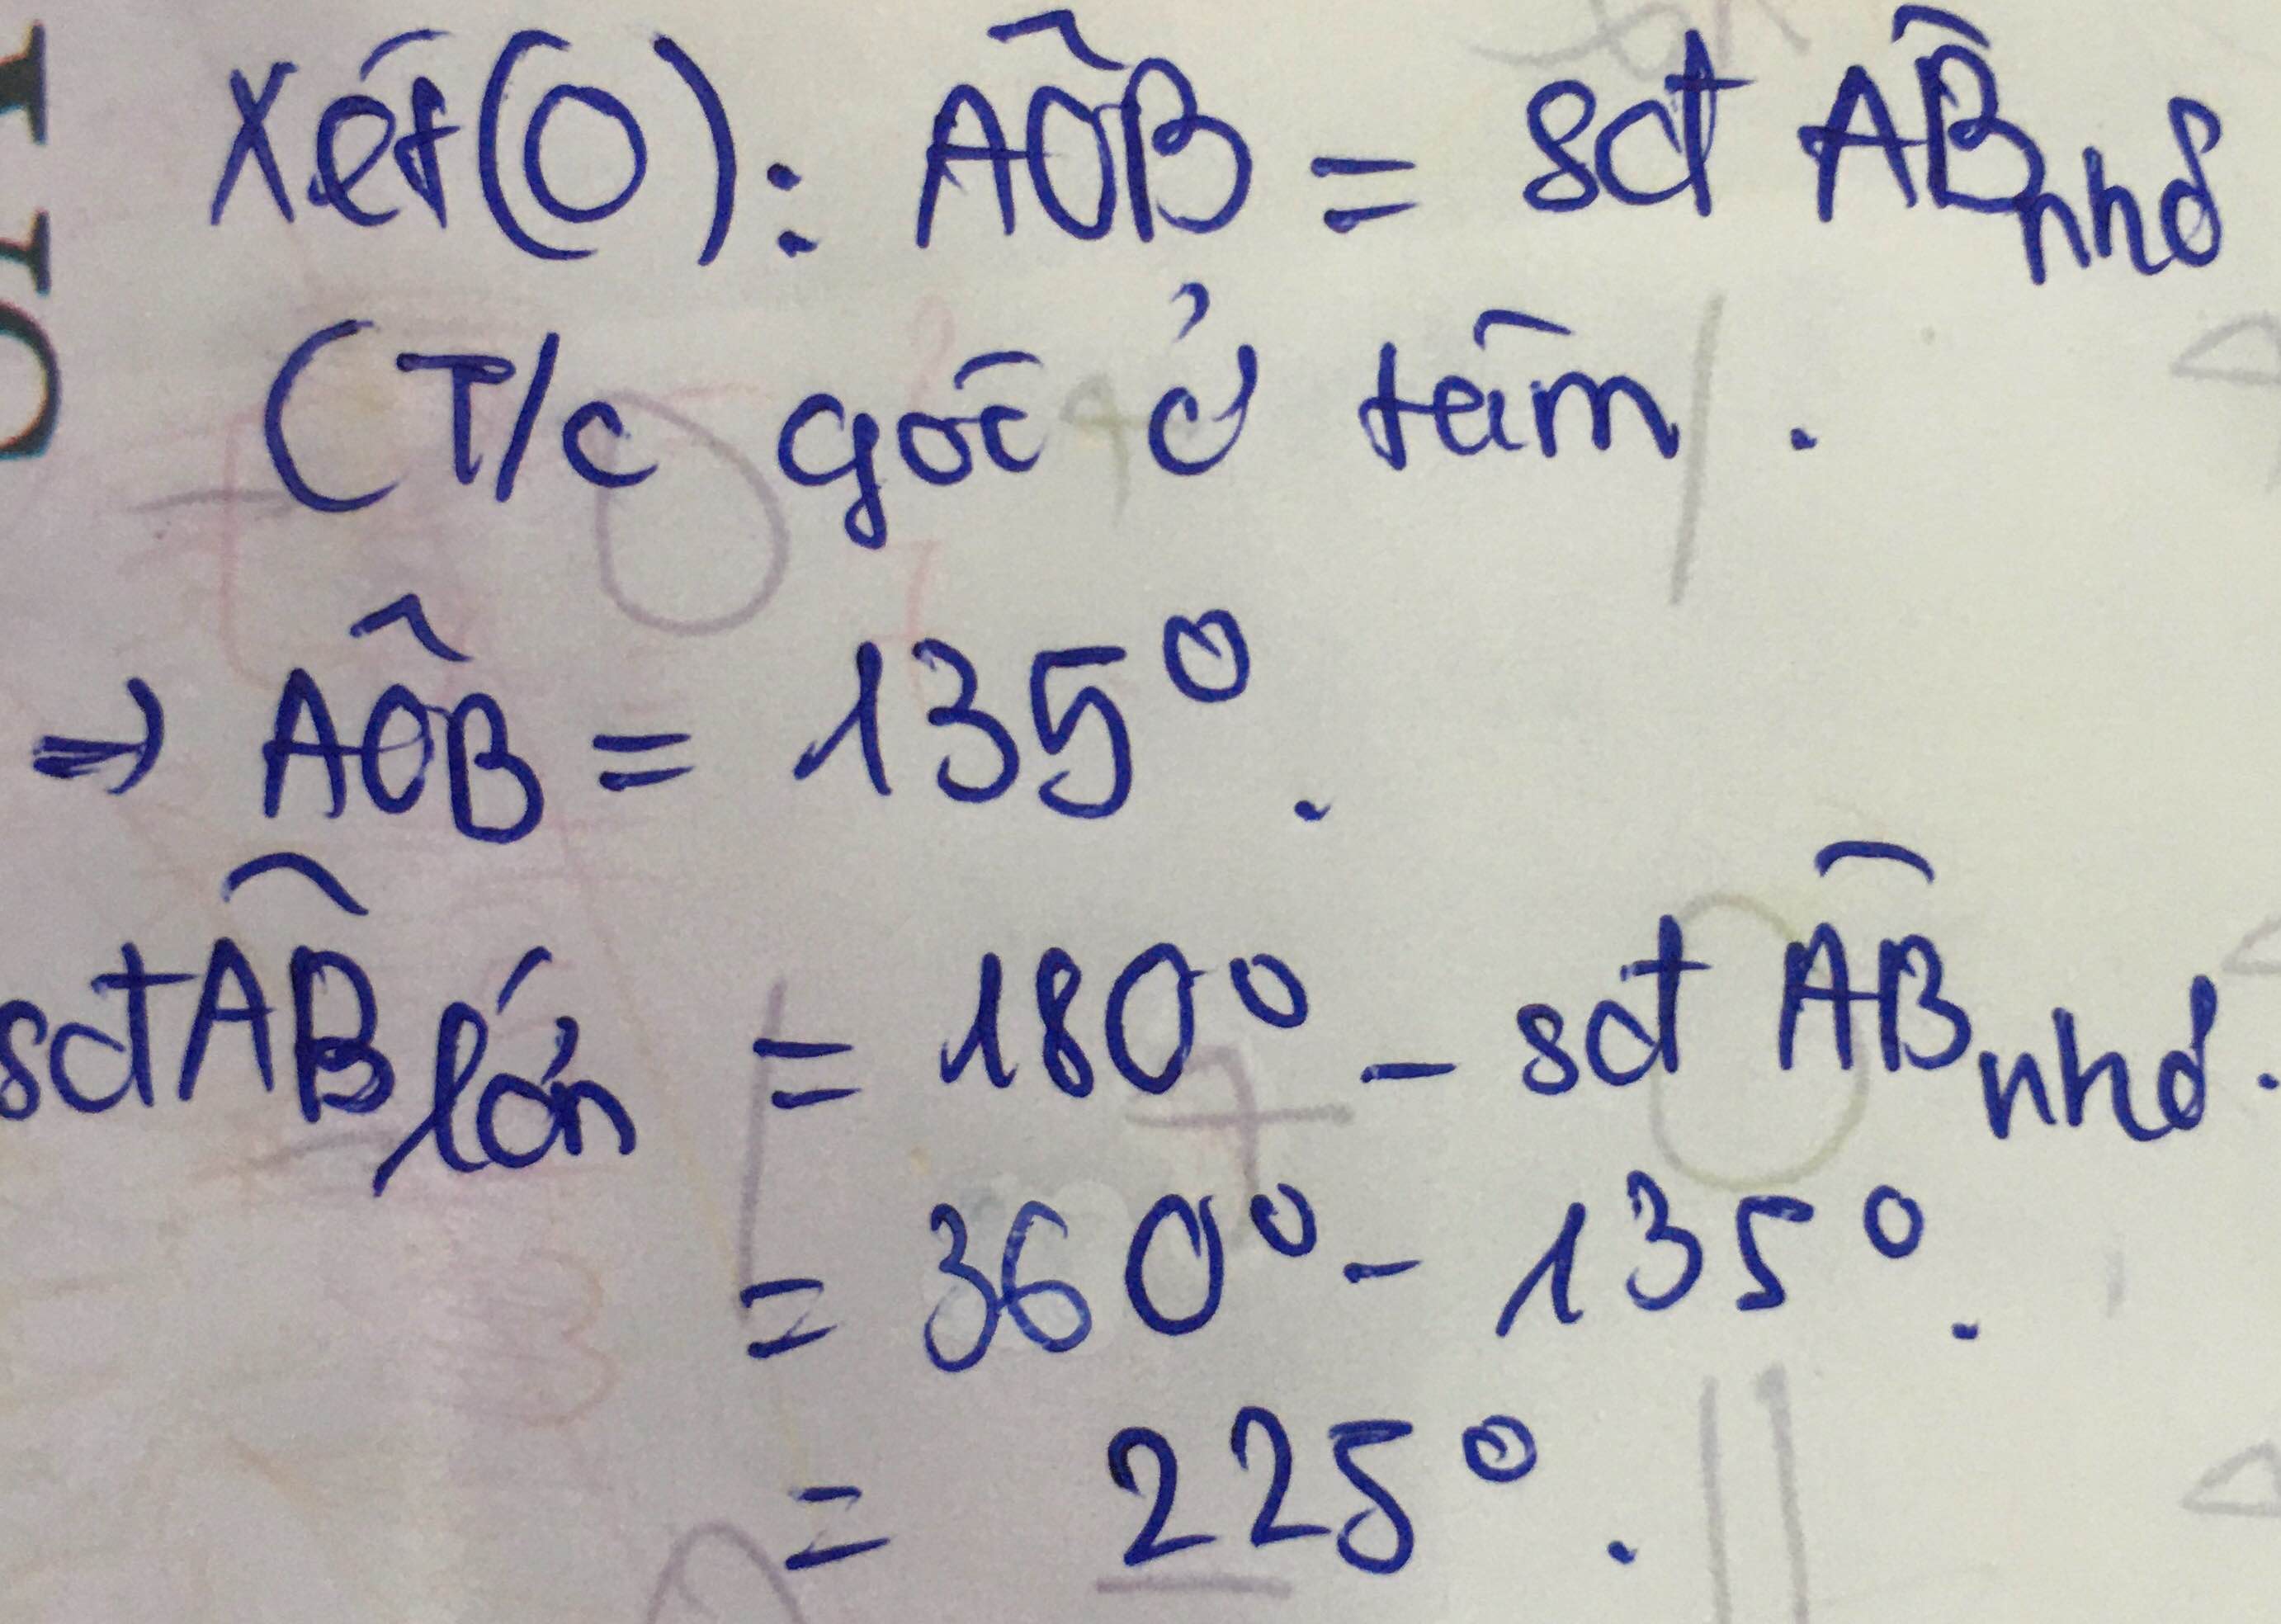 Xét (O): AÔB = sđ AB̂ nhỏ
(T/c góc ở tâm.
⇒ AÔB = 135°.
sđ AB̂ lớn = 180° - sđ AB̂ nhỏ.
= 360° - 135°.
= 225°.